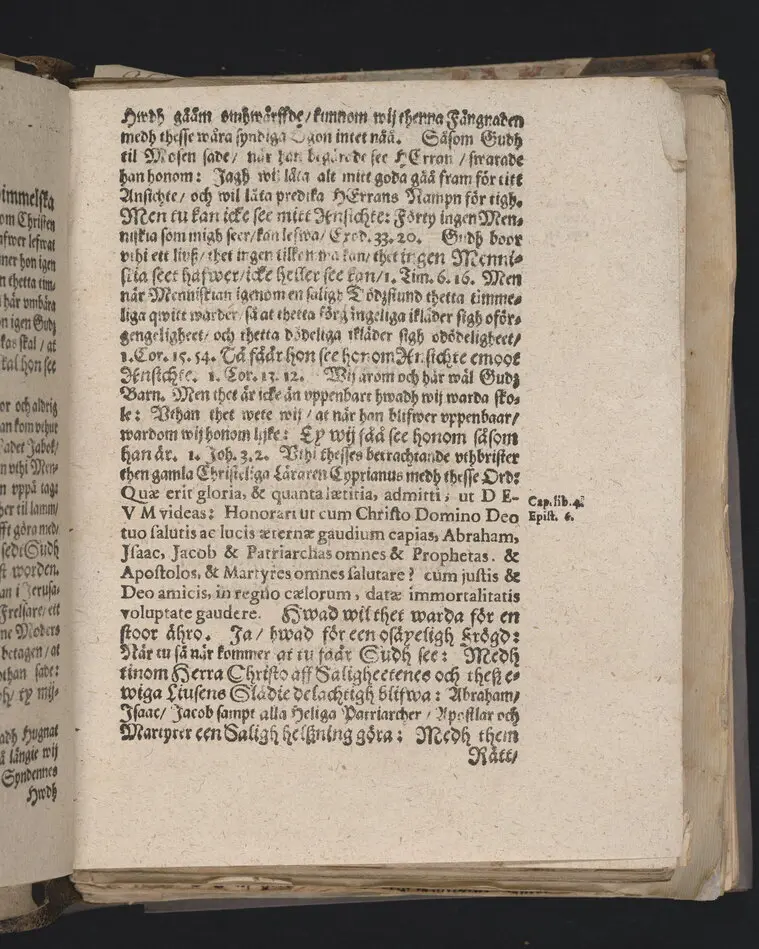 immelska
om Christen
afwer lefwat
mer hon igen
n thetta tim⸗
n igen Gudz
kas skal / at
kal hon see
or och aldrig
an kom vthur
Jabok/
n vthi Men⸗
n vppå tagt
her til lamm/
fft göra med/
sedt Gudh
st worden.
an i Jerusa⸗
Frelsare/ ett
ne Moders
betagen / at
othan sade:
oh/ ty mij⸗
adh Hugnat
å längie wij
Syndennes
Hwdh
Hwdh gååm omhwärffde/ kunnom wij thenna Fängnaden
medh thesse wåra syndiga Ögon intet nää. Såsom Gudh
til Mosen sade/ når han begärede see HErran / swarade
han honom: Jagh wil låta alt mitt goda gåå fram för titt
Ansichte/ och wil låta predika HErrans Nampn för tigh.
Men tu kan icke see mitt Ansichte: Förty ingen Men⸗
niskia som migh seer/ kan lefwa/ Exod. 33. 20. Gudh boor
vthi ett liuß/ thet ingen tilkomma kan/ thet ingen Menni⸗
skia seet hafwer/ icke heller see kan/ 1. Tim. 6. 16. Men
når Menniskian igenom en saligh Dödzstund thetta timme⸗
liga qwitt warder/ så at thetta förgängeliga ikläder sigh oför⸗
gengeligheet/ och thetta dödeliga ikläder sigh odödeligheet/
1. Cor. 15. 54. Tå fåår hon see honom Ansichte emoot
Ansichte. 1. Cor. 13. 12. Wij ärom och här wäl Gudz
Barn. Men thet är icke än vppenbart hwadh wij warda sko⸗
le: Vthan thet wete wij / at når han blifwer vppenbaar/
wardom wij honom lijke: Ty wij fåå see honom såsom
han är. 1. Joh. 3. 2. Vthi thesses betrachtande vthbrister
then gamla Christeliga Läraren Cyprianus medh thesse Ord:
Quæ erit gloria, & quanta lætitia, admitti, ut D E-
V M videas: Honorari ut cum Christo Domino Deo
tuo salutis ac lucis æternæ gaudium capias, Abraham,
Jsaac, Jacob & Patriarchas omnes & Prophetas. &
Apostolos, & Martyres omnes salutare? cum justis &
Deo amicis, in regno cælorum, datæ immortalitatis
voluptate gaudere. Hwad wil thet warda för en
stoor ähro. Ja/ hwad för een osäyeligh Frögd:
När tu så når kommer at tu fåår Gudh see: Medh
tinom Herra Christo aff Saligheetenes och thes e⸗
wiga Liusens Glädie delachtigh blifwa: Abraham/
Jsaac/ Jacob sampt alla Heliga Patriarcher / Apostlar och
Martyrer een Saligh helßning göra: Medh them
Rätt/
Cap. lib. 4.
Epist. 6.